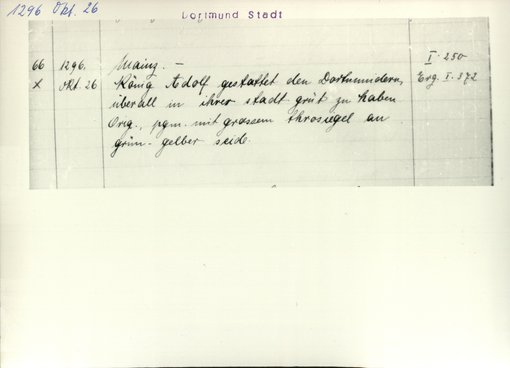 1296 Okt. 26
Dortmund Stadt
66 1296. Mainz. – I. 250
X Okt. 26 König Adolf gestattet den Dortmundern, Erg. I. 372
überall in ihrer stadt grüt zu haben
Orig., pgm. mit grossem thronsiegel an
grün-gelber seide.